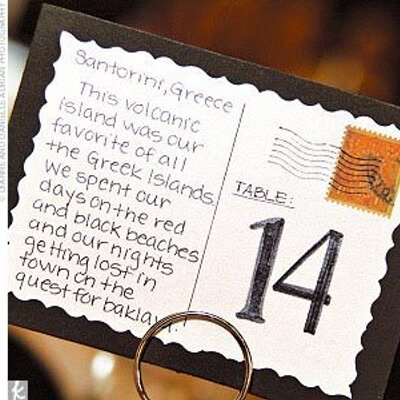 Santorini, Greece
This volcanic
island was our
favorite of all
the Greek Islands.
We spent our
days on the red
and black beaches
and our nights
getting lost in
town on the
quest for baklava!
TABLE:
14